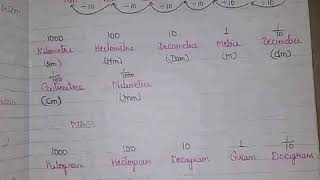 ÷10 ÷10 ÷10 ÷10 ÷10
1000 100 10 1 1/10
Kilometre Hectometre Decametre Metre Decimetre
(Km) (Hm) (Dam) (M) (dm)
1/100 1/1000
Centimetre Milimetre
(Cm) (mm)
MASS
1000 100 10 1 1/10
Kilogram Hectogram Decagram Gram Decigram